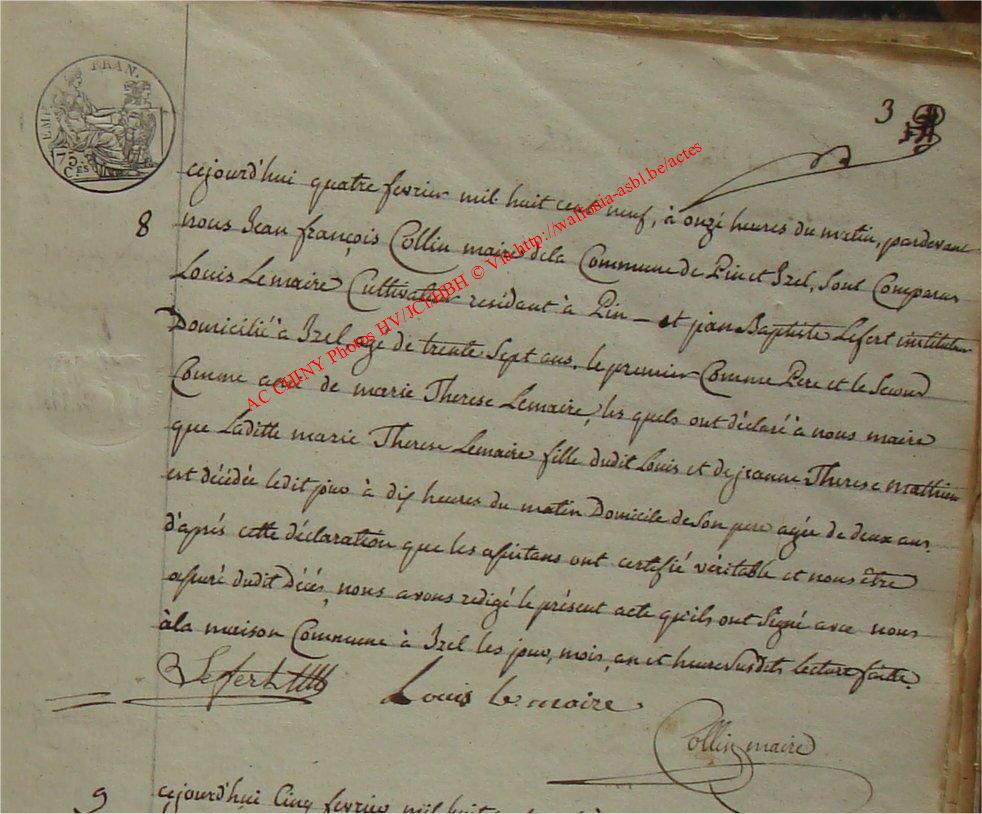 EMP. FRAN.
75.
C.ES
3
8
cejourd'hui quatre fevrier mil huit cent neuf, à onze heures du matin, pardevant
nous Jean françois Collin maire dela Commune de Pin et Izel, sont Comparus
Louis Lemaire Cultivateur residant à Pin – et jean Baptiste Lefert instituteur
Domicilié à Izel agé de trente Sept ans, le premier Comme Pere et le Second
Comme de marie Therese Lemaire, les quels ont déclaré à nous maire
que Laditte marie Therese Lemaire fille dudit Louis et de jeanne Therese Mathieu
est décédée ledit jour à dix heures du matin Domicile de Son pere agée de deux ans.
d'aprés cette déclaration que les ont certifié véritable et nous être
assuré dudit décés, nous avons redigé le présent acte qu'ils ont Signé avec nous
à la maison Commune à Izel les jour, mois, an et heure susdits lecture faite.
Lefert
Louis le maire
Collin maire
9
cejourd'hui Cinq fevrier mil huit
AC CHINY Photos HV/JCHHBH © Via http://wallonia-asbl.be/actes